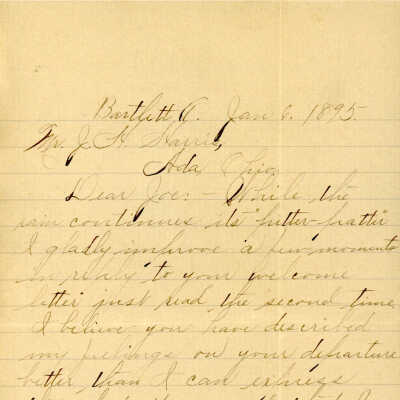 Bartlett O. Jan 6. 1895.
Mr. J. H. Harris,
Ada, Ohio.
Dear Joe: – While the
rain continues its "pitter-patter"
I gladly improve a few moments
in reply to your welcome
letter just read the second time
I believe you have described
my feelings on your departure
better than I can express